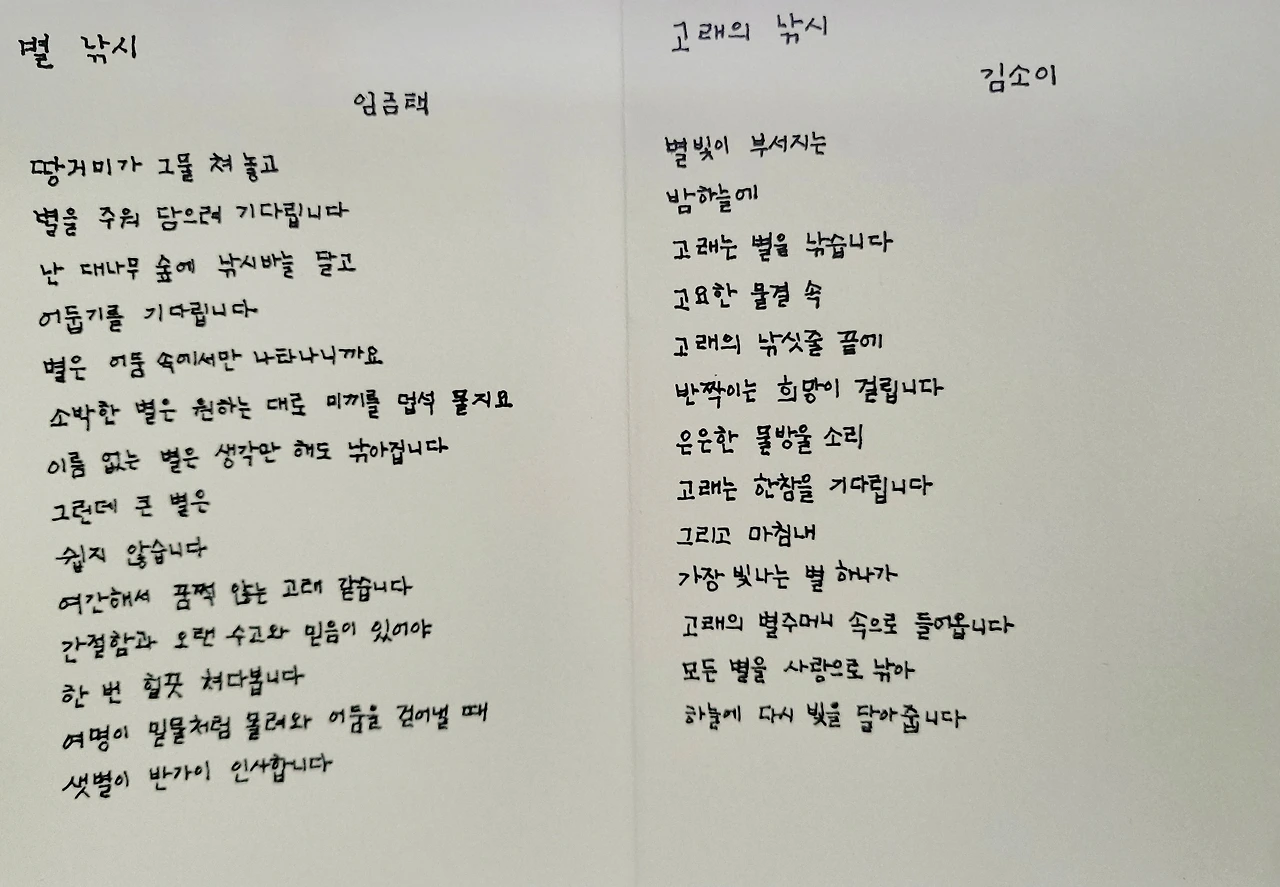 별 낚시
임금택
땅거미가 그물 쳐 놓고
별을 주워 담으려 기다립니다
난 대나무 숲에 낚시바늘 달고
어둡기를 기다립니다
별은 어둠 속에서만 나타나니까요
소박한 별은 원하는 대로 미끼를 덥석 물지요
이름 없는 별은 생각만 해도 낚아집니다
그런데 큰 별은
쉽지 않습니다
여간해서 꿈쩍 않는 고래 같습니다
간절함과 오랜 수고와 믿음이 있어야
한 번 힐끗 쳐다봅니다
여명이 밀물처럼 몰려와 어둠을 걷어낼 때
샛별이 반가이 인사합니다
고래의 낚시
김소이
별빛이 부서지는
밤하늘에
고래는 별을 낚습니다
고요한 물결 속
고래의 낚싯줄 끝에
반짝이는 희망이 걸립니다
은은한 물방울 소리
고래는 한참을 기다립니다
그리고 마침내
가장 빛나는 별 하나가
고래의 별주머니 속으로 들어옵니다
모든 별을 사랑으로 낚아
하늘에 다시 빛을 달아줍니다